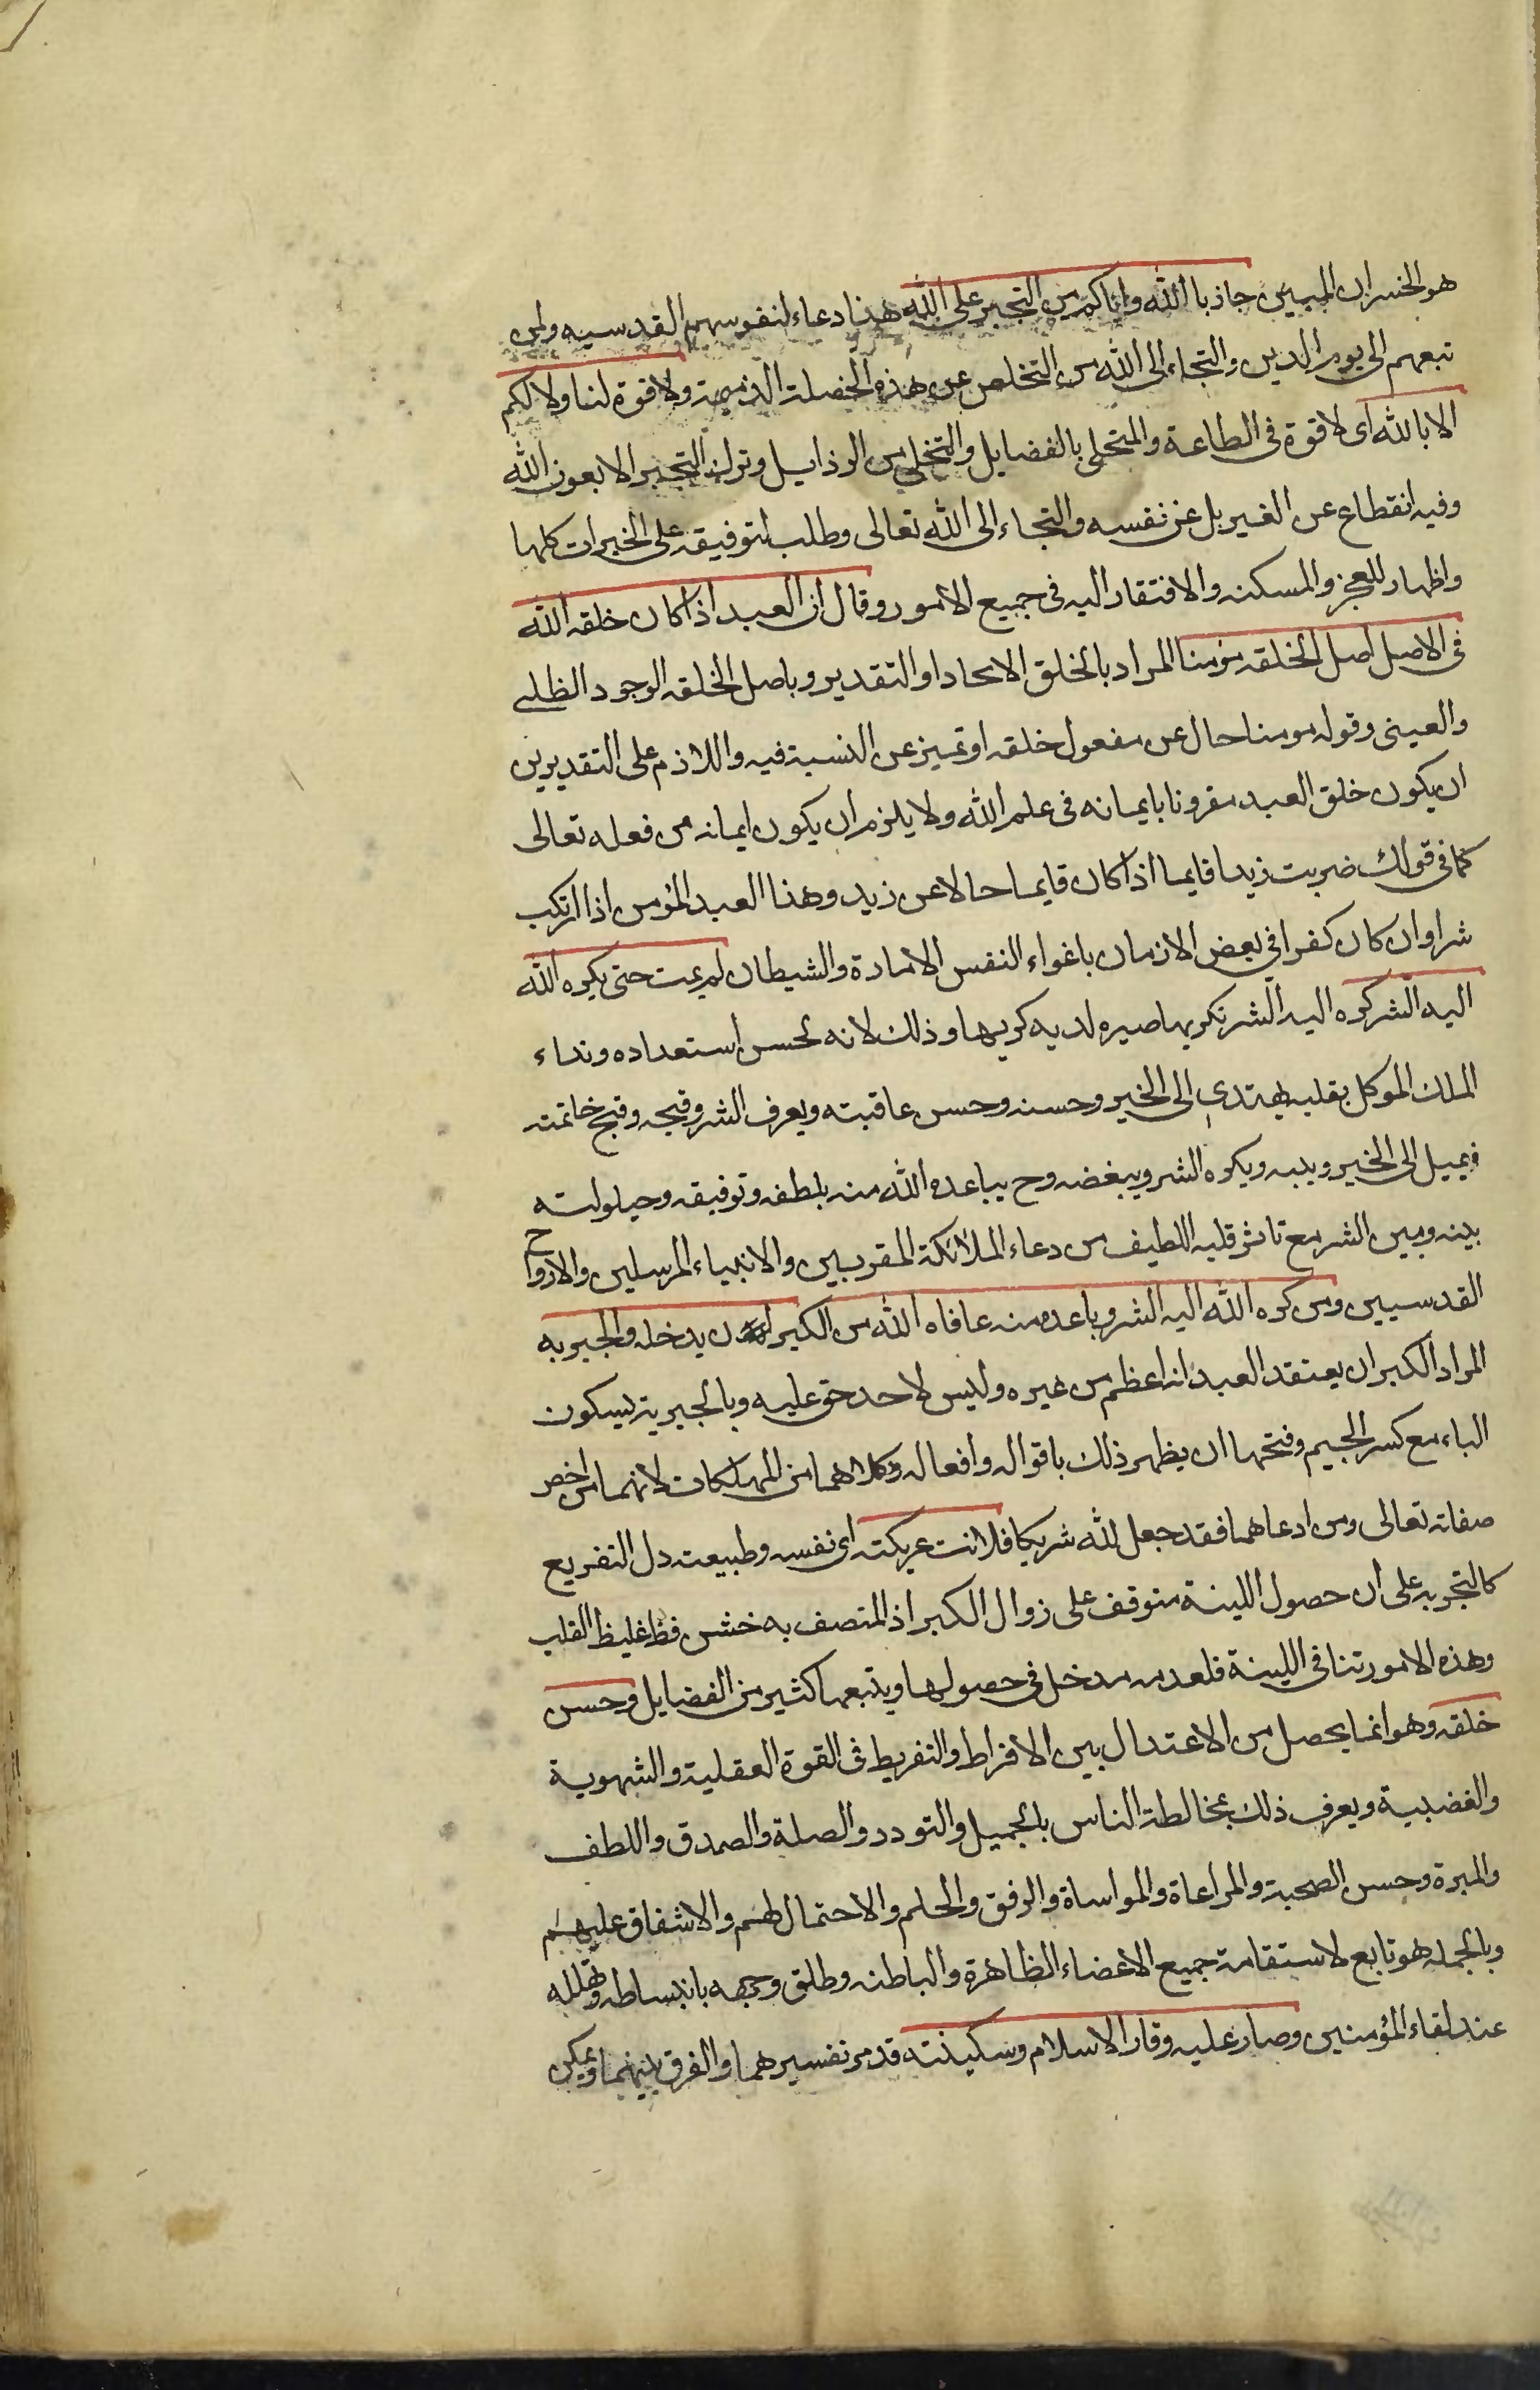 هو الخسران المبين جاذبا الله واياكم من التجبر على الله هذا دعاء لنفوسهم القدسيه ولمن
تبعهم الى يوم الدين والتجاء الى الله من التخلص عن هذه الخصلة الذميمة ولا قوة لنا ولا لكم
الا بالله اى لا قوة فى الطاعة والتحلى بالفضايل والتخلى من الرذايل وترك التجبر الا بعون الله
وفيه انقطاع عن الغير بل عن نفسه والتجاء الى الله تعالى وطلب لتوفيقه على الخيرات كلها
واظهار للعجز والمسكنه والافتقار اليه فى جميع الامور وقال ان العبد اذا كان خلقه الله
فى الاصل اصل الخلقه مؤمنا المراد بالخلق الايجاد او التقدير وباصل الخلقه الوجود الظلى
والعينى وقوله مومنا حال عن مفعول خلقه او تميز عن النسبة فيه واللازم على التقديرين
ان يكون خلق العبد مقرونا بايمانه فى علم الله ولا يلزم ان يكون ايمانه من فعله تعالى
كما فى قولك ضربت زيدا قايما اذا كان قايما حالا عن زيد وهذا العبد المؤمن اذا ارتكب
شرا وان كان كفرا في بعض الازمان باغواء النفس الامارة والشيطان لم يمت حتى يكره الله
اليه الشر كره اليه الشر تكريها صيره لديه كريها وذلك لانه لحسن استعداده ونداء
الملك الموكل بقلبه يهتدي الى الخير وحسنه وحسن عاقبته ويعرف الشر وقبحه وقبح خاتمته
فيميل الى الخير ويحبه ويكره الشر ويبغضه وح يباعده الله منه بلطفه وتوفيقه وحيلولته
بينه وبين الشر مع تاثر قلبه اللطيف من دعاء الملائكة المقربين والانبياء المرسلين والارواح
القدسيين ومن كره الله اليه الشر وباعده منه عافاه الله من الكبر ان يدخله والجبريه
المراد الكبر ان يعتقد العبد انه اعظم من غيره وليس لاحد حق عليه وبالجبرية بسكون
الباء مع كسر الجيم وفتحها ان يظهر ذلك باقواله وافعاله وكلاهما من المهلكات لانهما من اخص
صفاته تعالى ومن ادعاهما فقد جعل لله شريكا فلانت عريكته اى نفسه وطبيعته دل التفريع
كالتجربه على ان حصول اللينة متوقف على زوال الكبر اذ المتصف به خشن فظ غليظ القلب
وهذه الامور تنافى اللينة فلعدمه مدخل فى حصولها ويتبعها كثير من الفضايل وحسن
خلقه وهو انما يحصل من الاعتدال بين الافراط والتفريط فى القوة العقلية والشهوية
والغضبية ويعرف ذلك بمخالطة الناس بالجميل والتودد والصلة والصدق واللطف
والمبرة وحسن الصحبة والمراعاة والمواساة والرفق والحلم والاحتمال لهم والاشفاق عليهم
وبالجمله هو تابع لاستقامة جميع الاعضاء الظاهرة والباطنه وطلق وجهه بانبساطه وتهلله
عند لقاء المؤمنين وصار عليه وقار الاسلام وسكينته قد مر تفسيرهما والفرق بينهما ويمكن